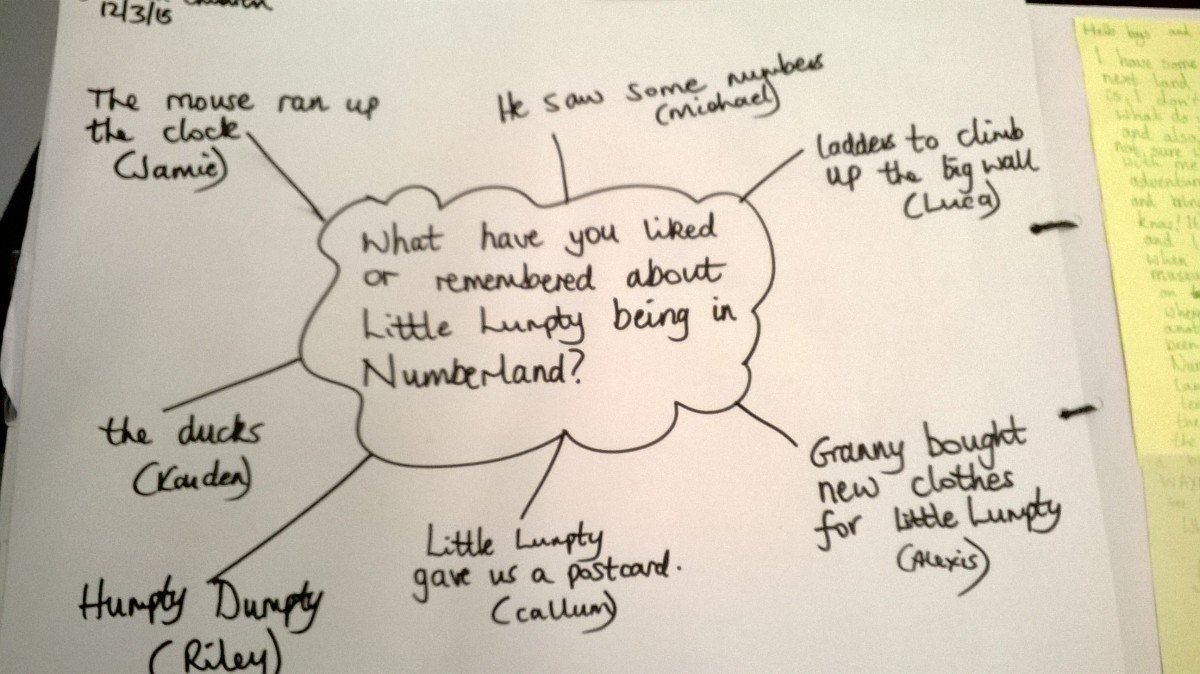 12/3/15
The mouse ran up
the clock
(Jamie)
He saw some numbers
(Michael)
ladders to climb
up the big wall
(Luca)
What have you liked
or remembered about
Little Lumpty being in
Numberland?
the ducks
(Kayden)
Humpty Dumpty
(Riley)
Little Lumpty
gave us a postcard.
(Callum)
Granny bought
new clothes
for little Lumpty
(Alexis)
Hello boys and
I have some
next land
is, I don't
what do
and also
not sure
with me
adventure
and
know! It
and
when
museum
on
when
been
the
the